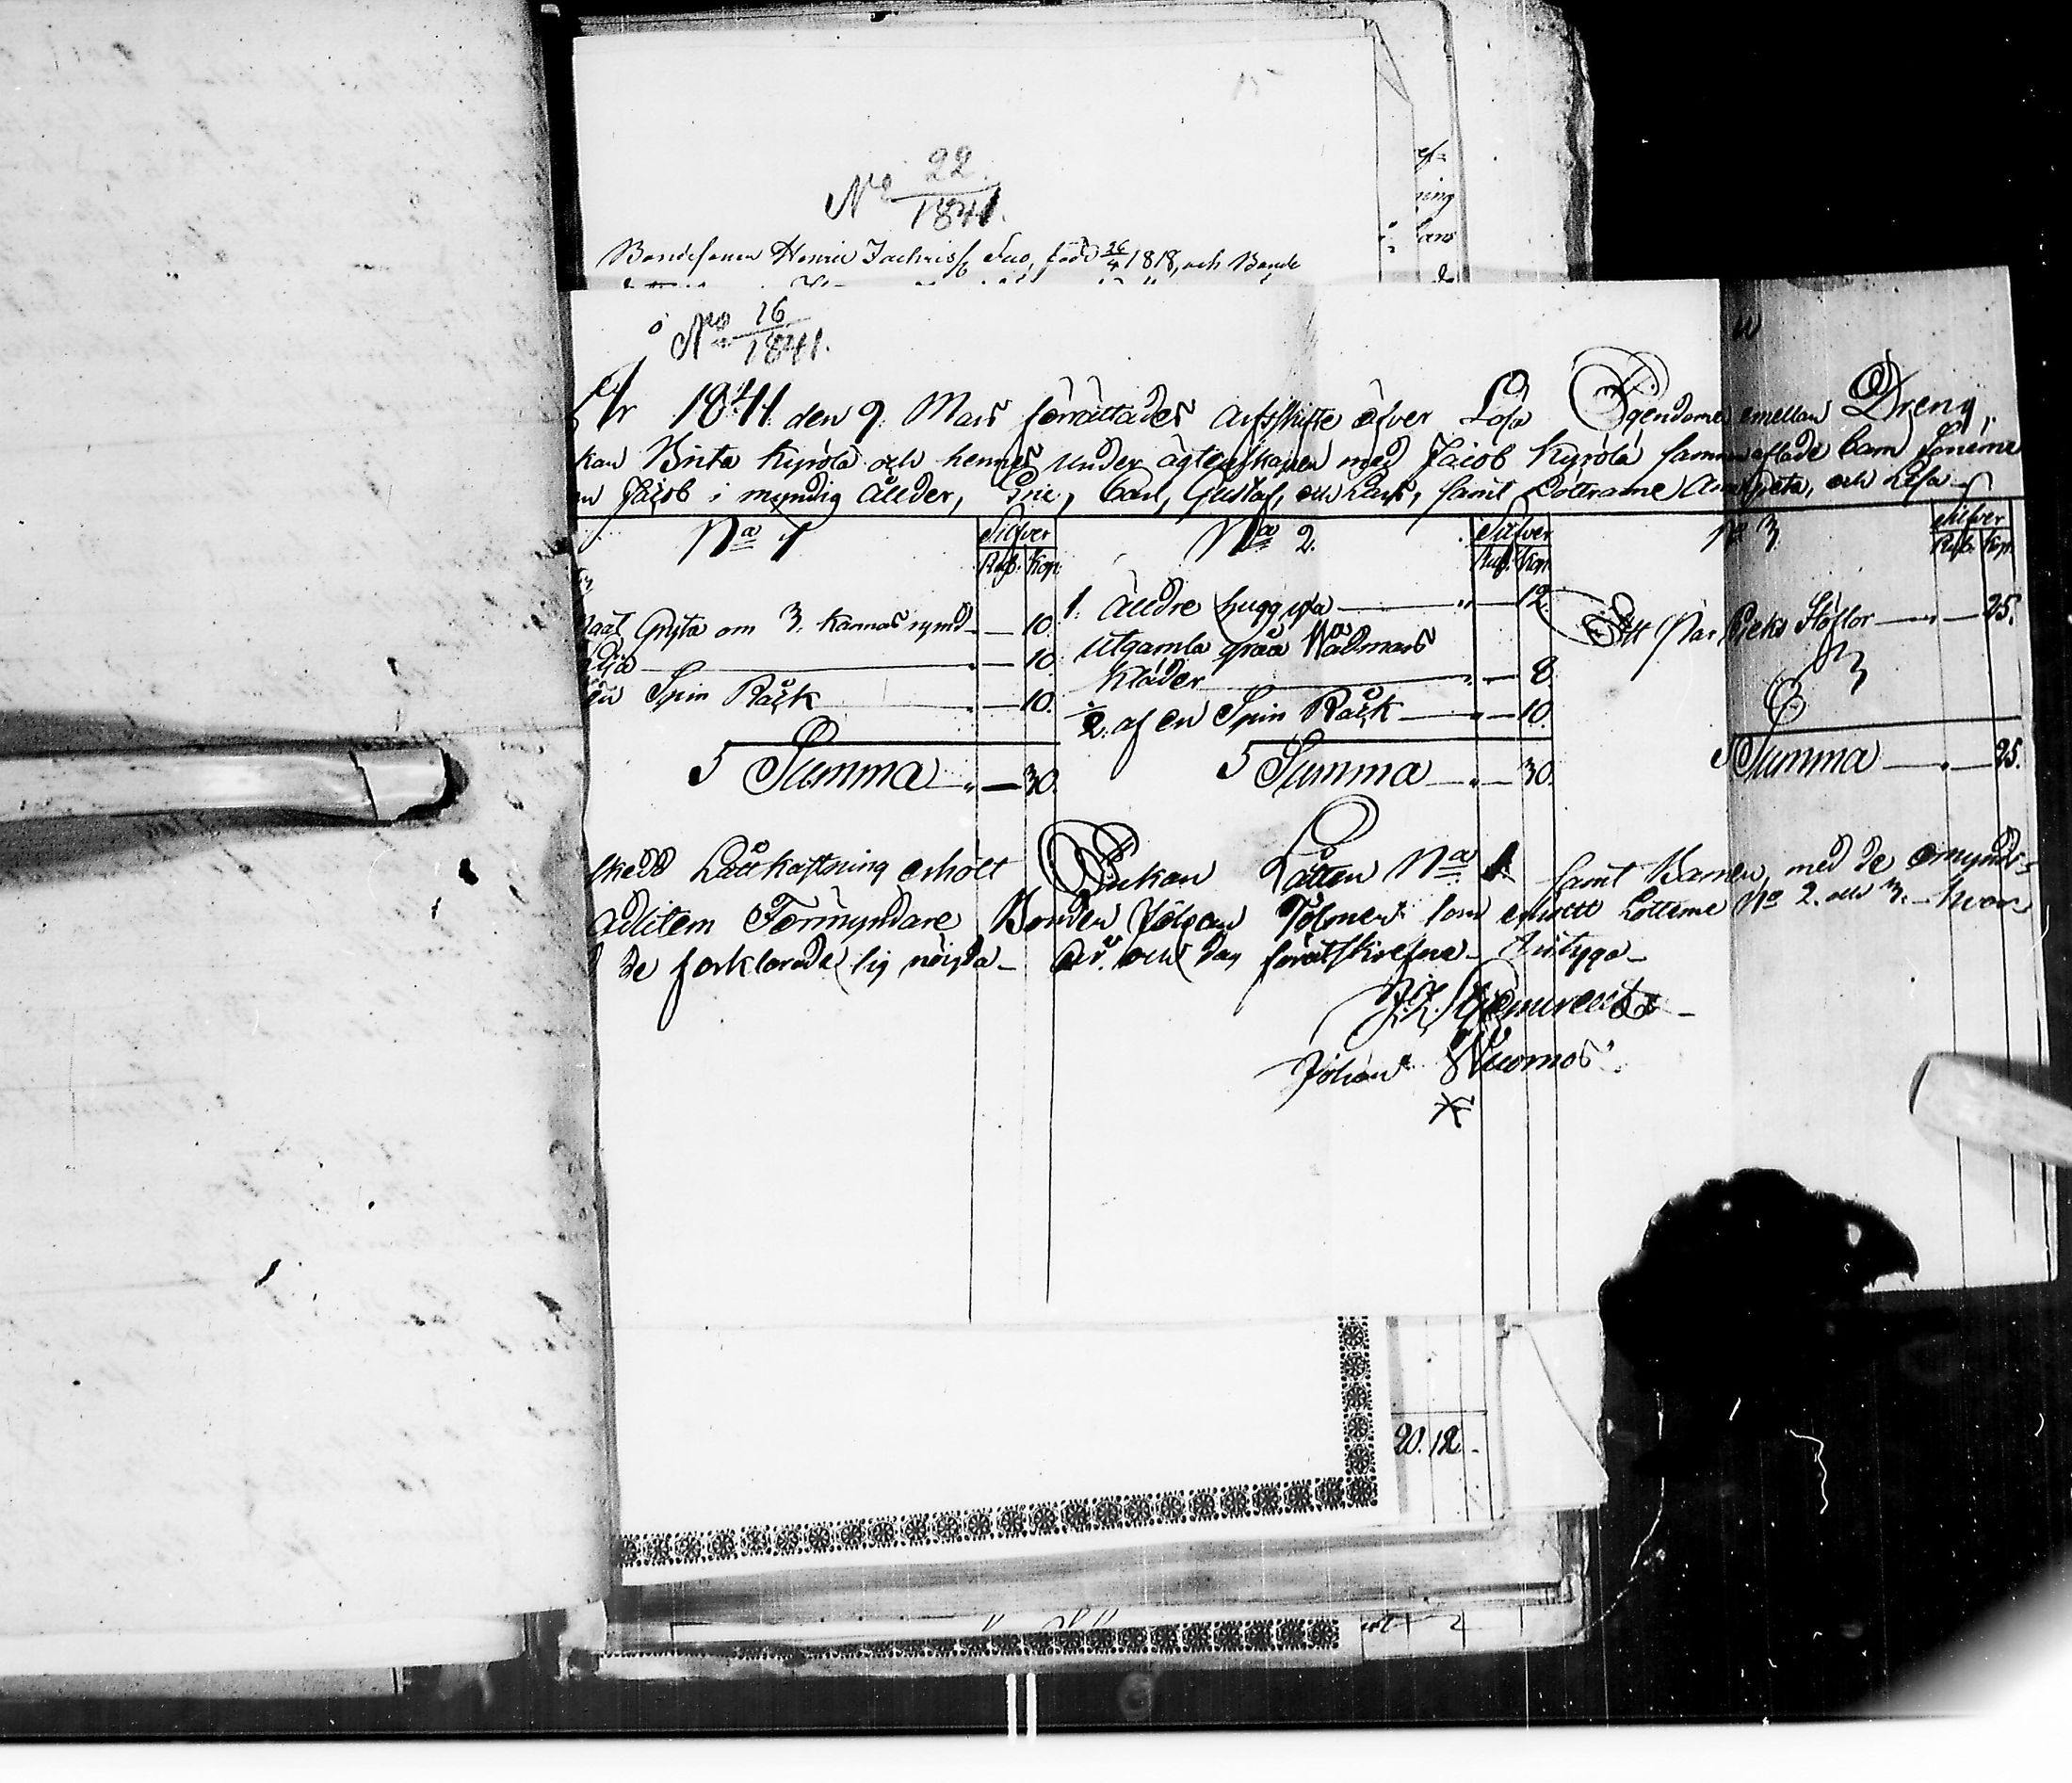 No 22.
1841.
Bondesonen Henric Zachriss Suo, född 26/4 1818, och Bonde
No 16
1841.
År 1841 den 9 Mars förrättades arfskifte öfver Lösa Egendomen emellan Dreng
kan Brita Kyrölä och hennes under ägtenskapen med Jacob Kyrölä sammanaflade barn Sönerne
Jacob i myndig ållder, Eric, Carl, Gustaf, och Lars, samt Dottrarne Anna Greta, och Lisa
No 1
Silfver
Rub. Kop.
Gryta om 3. kannas rymd 10.
10.
Spin Råck 10.
Summa 30.
No 2.
Silfver
Rub. Kop.
1. ålldre hugg yxa 12.
Utgamla gråa Wadmars
kläder 8
1/2. af en Spin Råck 10.
Summa 30.
No 3
Silfver
Rub. Kop.
Ett Par Pieks Stöflor 25.
Summa 25.
skedd Lått kastning erhölt Enkan Låtten No 1 samt Barnen, med de omyndi=
adlitem Förmyndare Bonden Johan Tolonen som erhöllt Lotterne No 2. och 3. hvar=
de förklarade sig nöigda År och dag föreskrefne Bityga
Johan Wuomos
20. 12